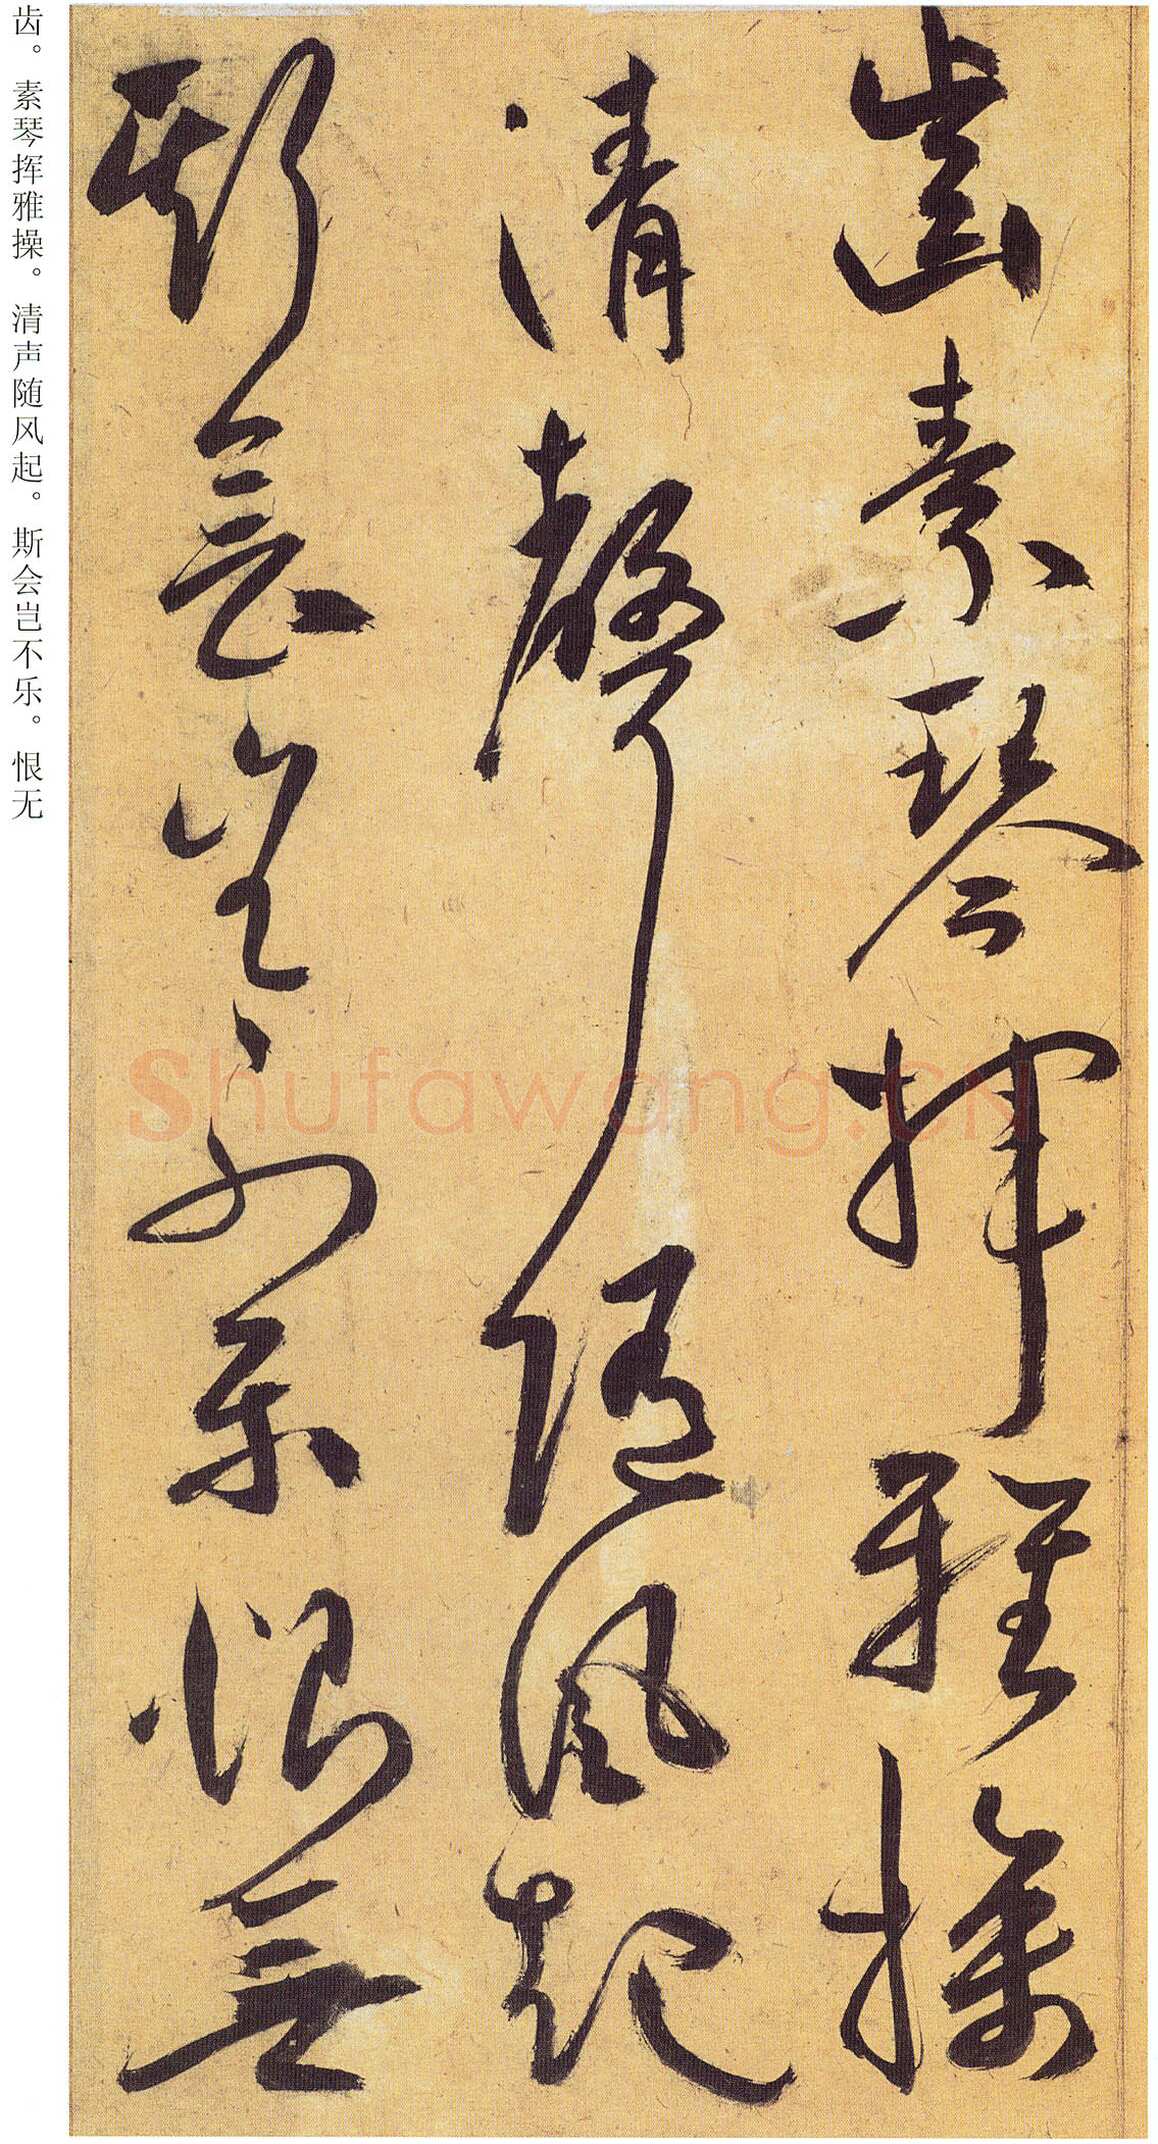 齿素琴挥雅操
清聲随风起
斯会岂不乐恨無
齿。素琴挥雅操。清声随风起。斯会岂不乐。恨无
Shufawang.CN